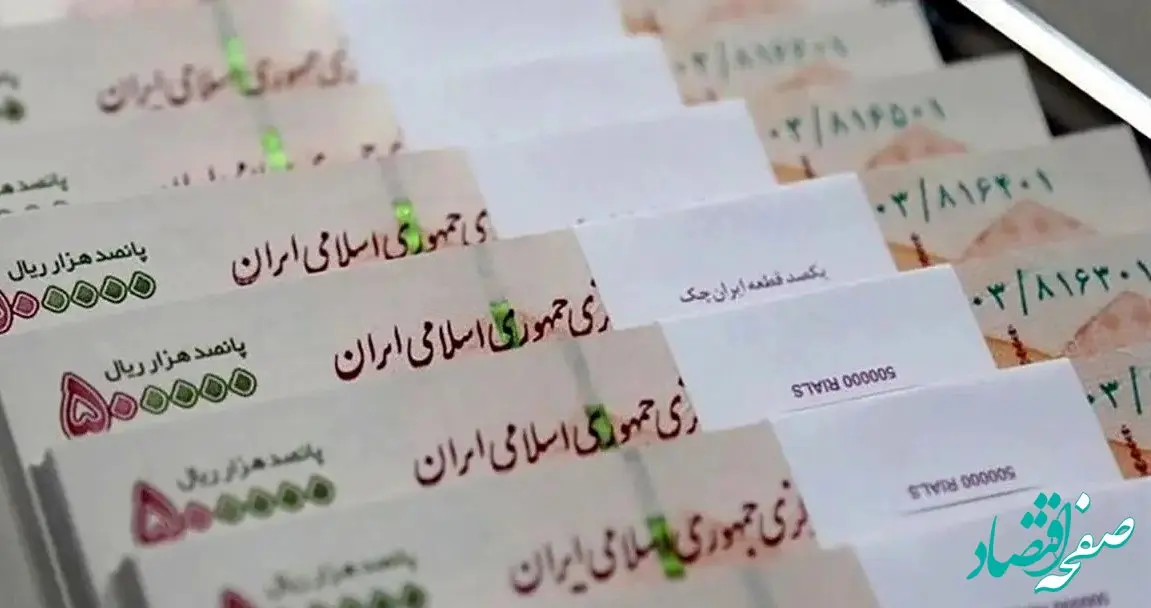 جمهوری اسلامی ایران
۰۳/۸۱۶۶۰۱
۰۳/۸۱۶۵۰۱
پانصد هزار ریال
۵۰۰۰۰۰
جمهوری اسلامی ایران
۰۳/۸۱۶۴۰۱
یکصد قطعه ایران چک
پانصد هزار ریال
۵۰۰۰۰۰
جمهوری اسلامی ایران
۰۳/۸۱۶۳۰۱
500000 RIALS
پانصد هزار ریال
۵۰۰۰۰۰
جمهوری اسلامی ایران
500000 RIALS
پانصد هزار ریال
جمهوری اسلامی ایران
صفحه اقتصاد